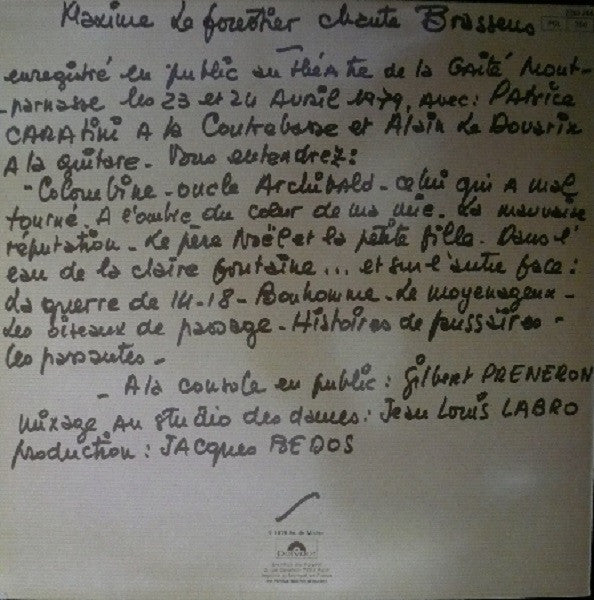 Maxime Le forestier chante Brassens
enregistré en public au théâtre de la GAîté Mont-
-parnasse les 23 et 24 Avril 1979, avec: PATRICE
CARATINI A la Contrebasse et Alain Le Douarin
A la guitare - Vous entendrez:
"Colombine - oncle Archibald - celui qui A mal
tourné. A l'ombre du cœur de ma mie. La mauvaise
réputation - Le père Noël et la petite fille - Dans l'
eau de la claire fontaine... et sur l'autre face:
La guerre de 14-18 - Bonhomme - Le moyenageux -
Les oiseaux de passage - Histoires de faussaires -
Les passantes -
- A la console en public: Gilbert PRENERON
mixage Au studio des dames: Jean Louis LABRO
production: JACQUES BEDOS
polydor